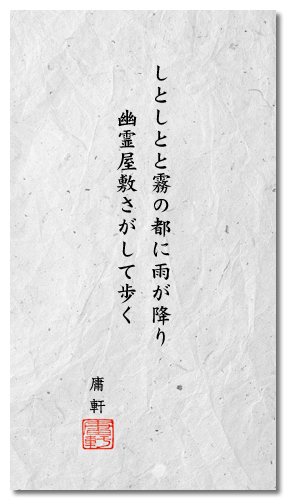 しとしとと霧の都に雨が降り
幽霊屋敷さがして歩く
庸軒
庸軒